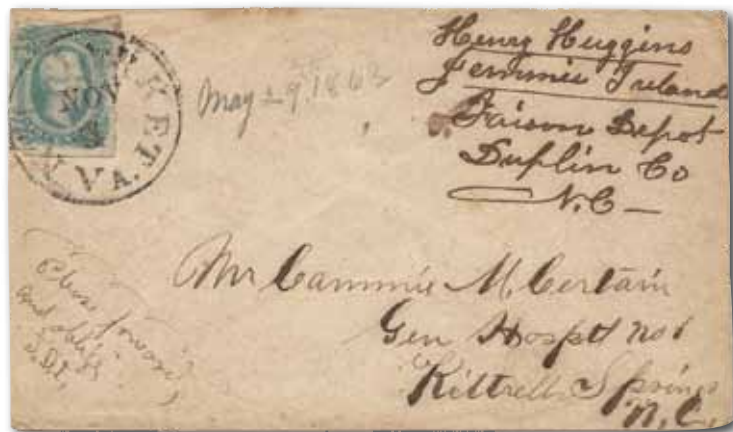 NOV
VA.
May 29. 1863
Henry Huggins
Jemmie Ireland
Faison Depot
Duplin Co
N.C—
Mr Cammie McCertain
Gen Hosptl No 1
Kittrell Springs
N.C.
Please forward
and oblige